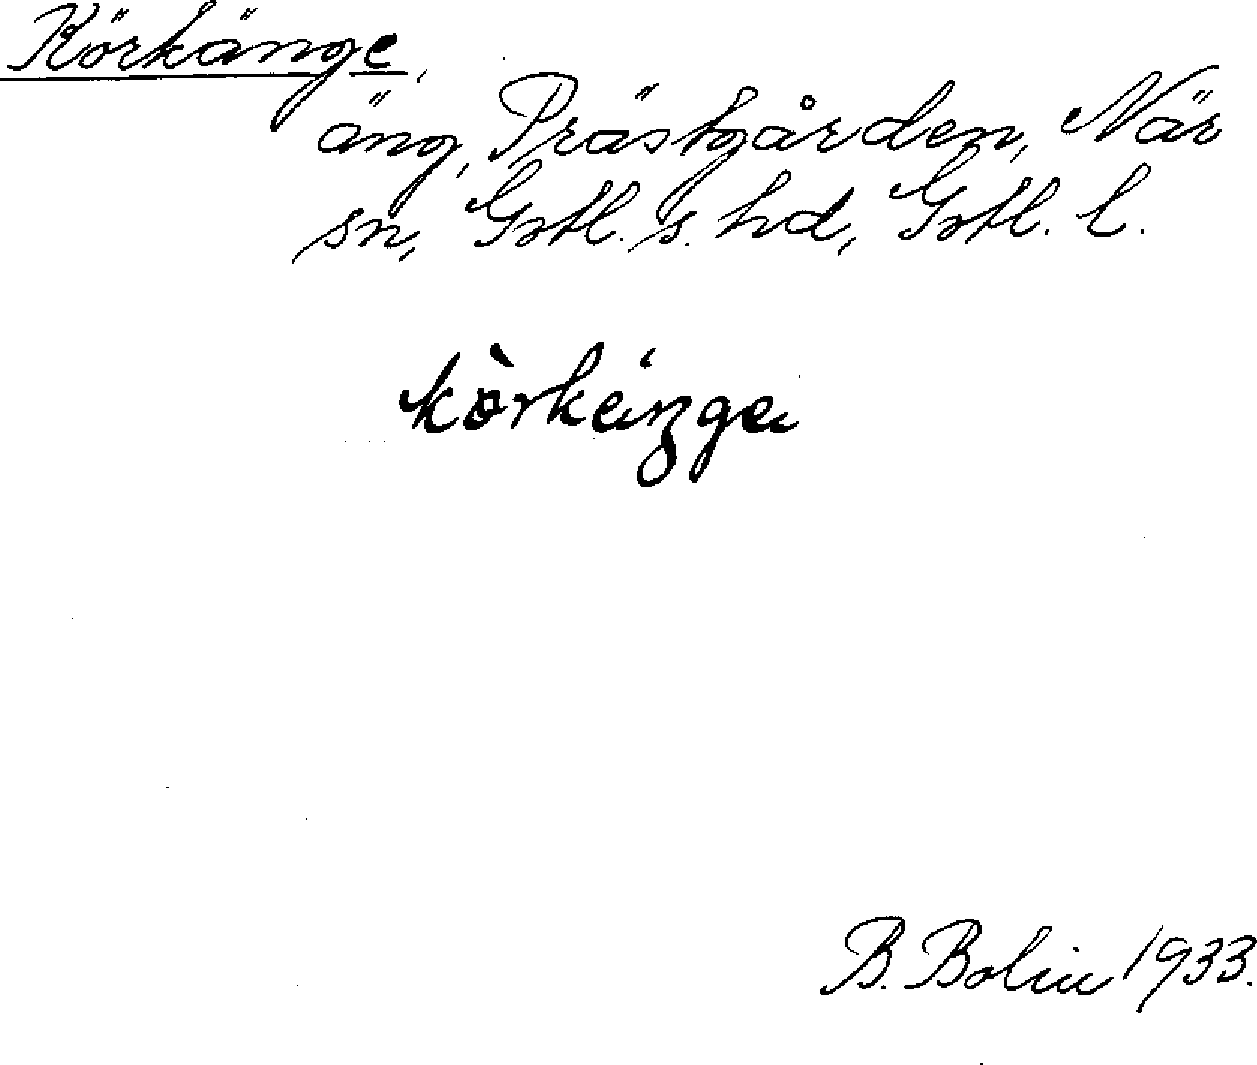 Körkänge,
äng, Prästgården, När
sn, Gotl. s. hd, Gotl. l.
B. Bolin 1933.